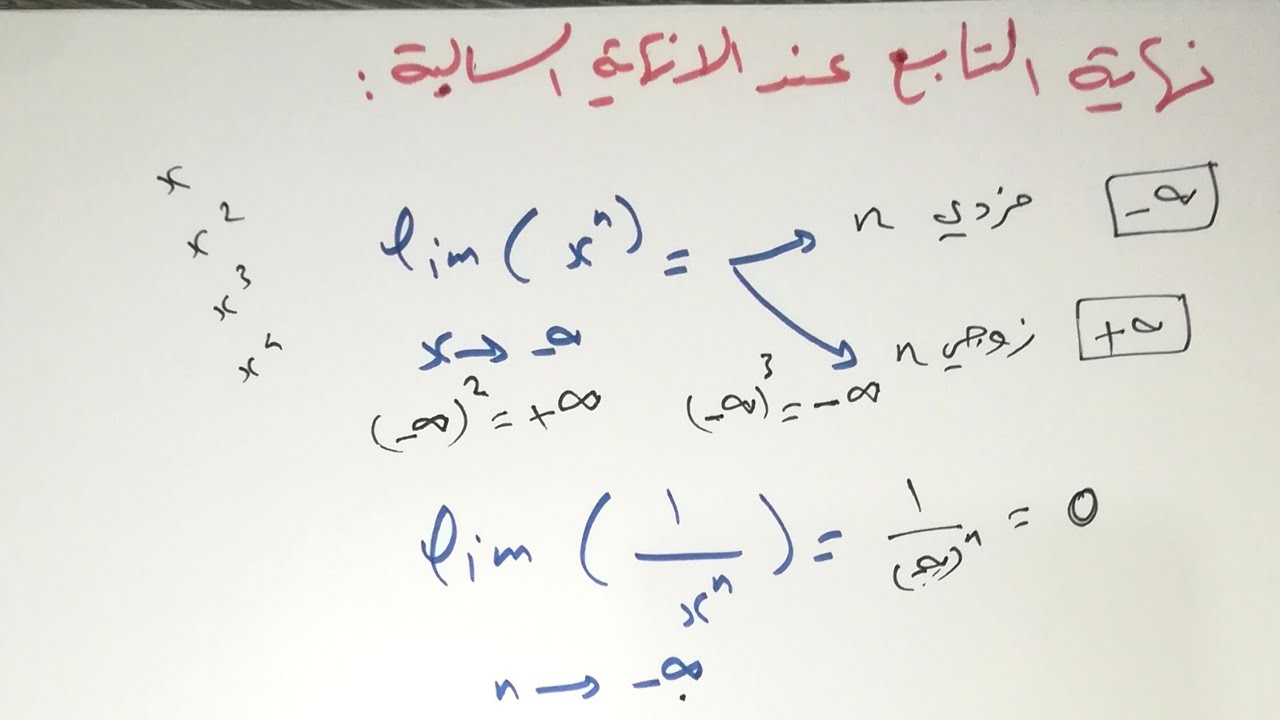 نهاية التابع عند الانهاية السالبة :
x
x²
x³
xⁿ
lim (xⁿ) =
x → -∞
n فردي -∞
n زوجي +∞
(-∞)² = +∞
(-∞)³ = -∞
lim (1/xⁿ) = 1/(-∞)ⁿ = 0
n → -∞